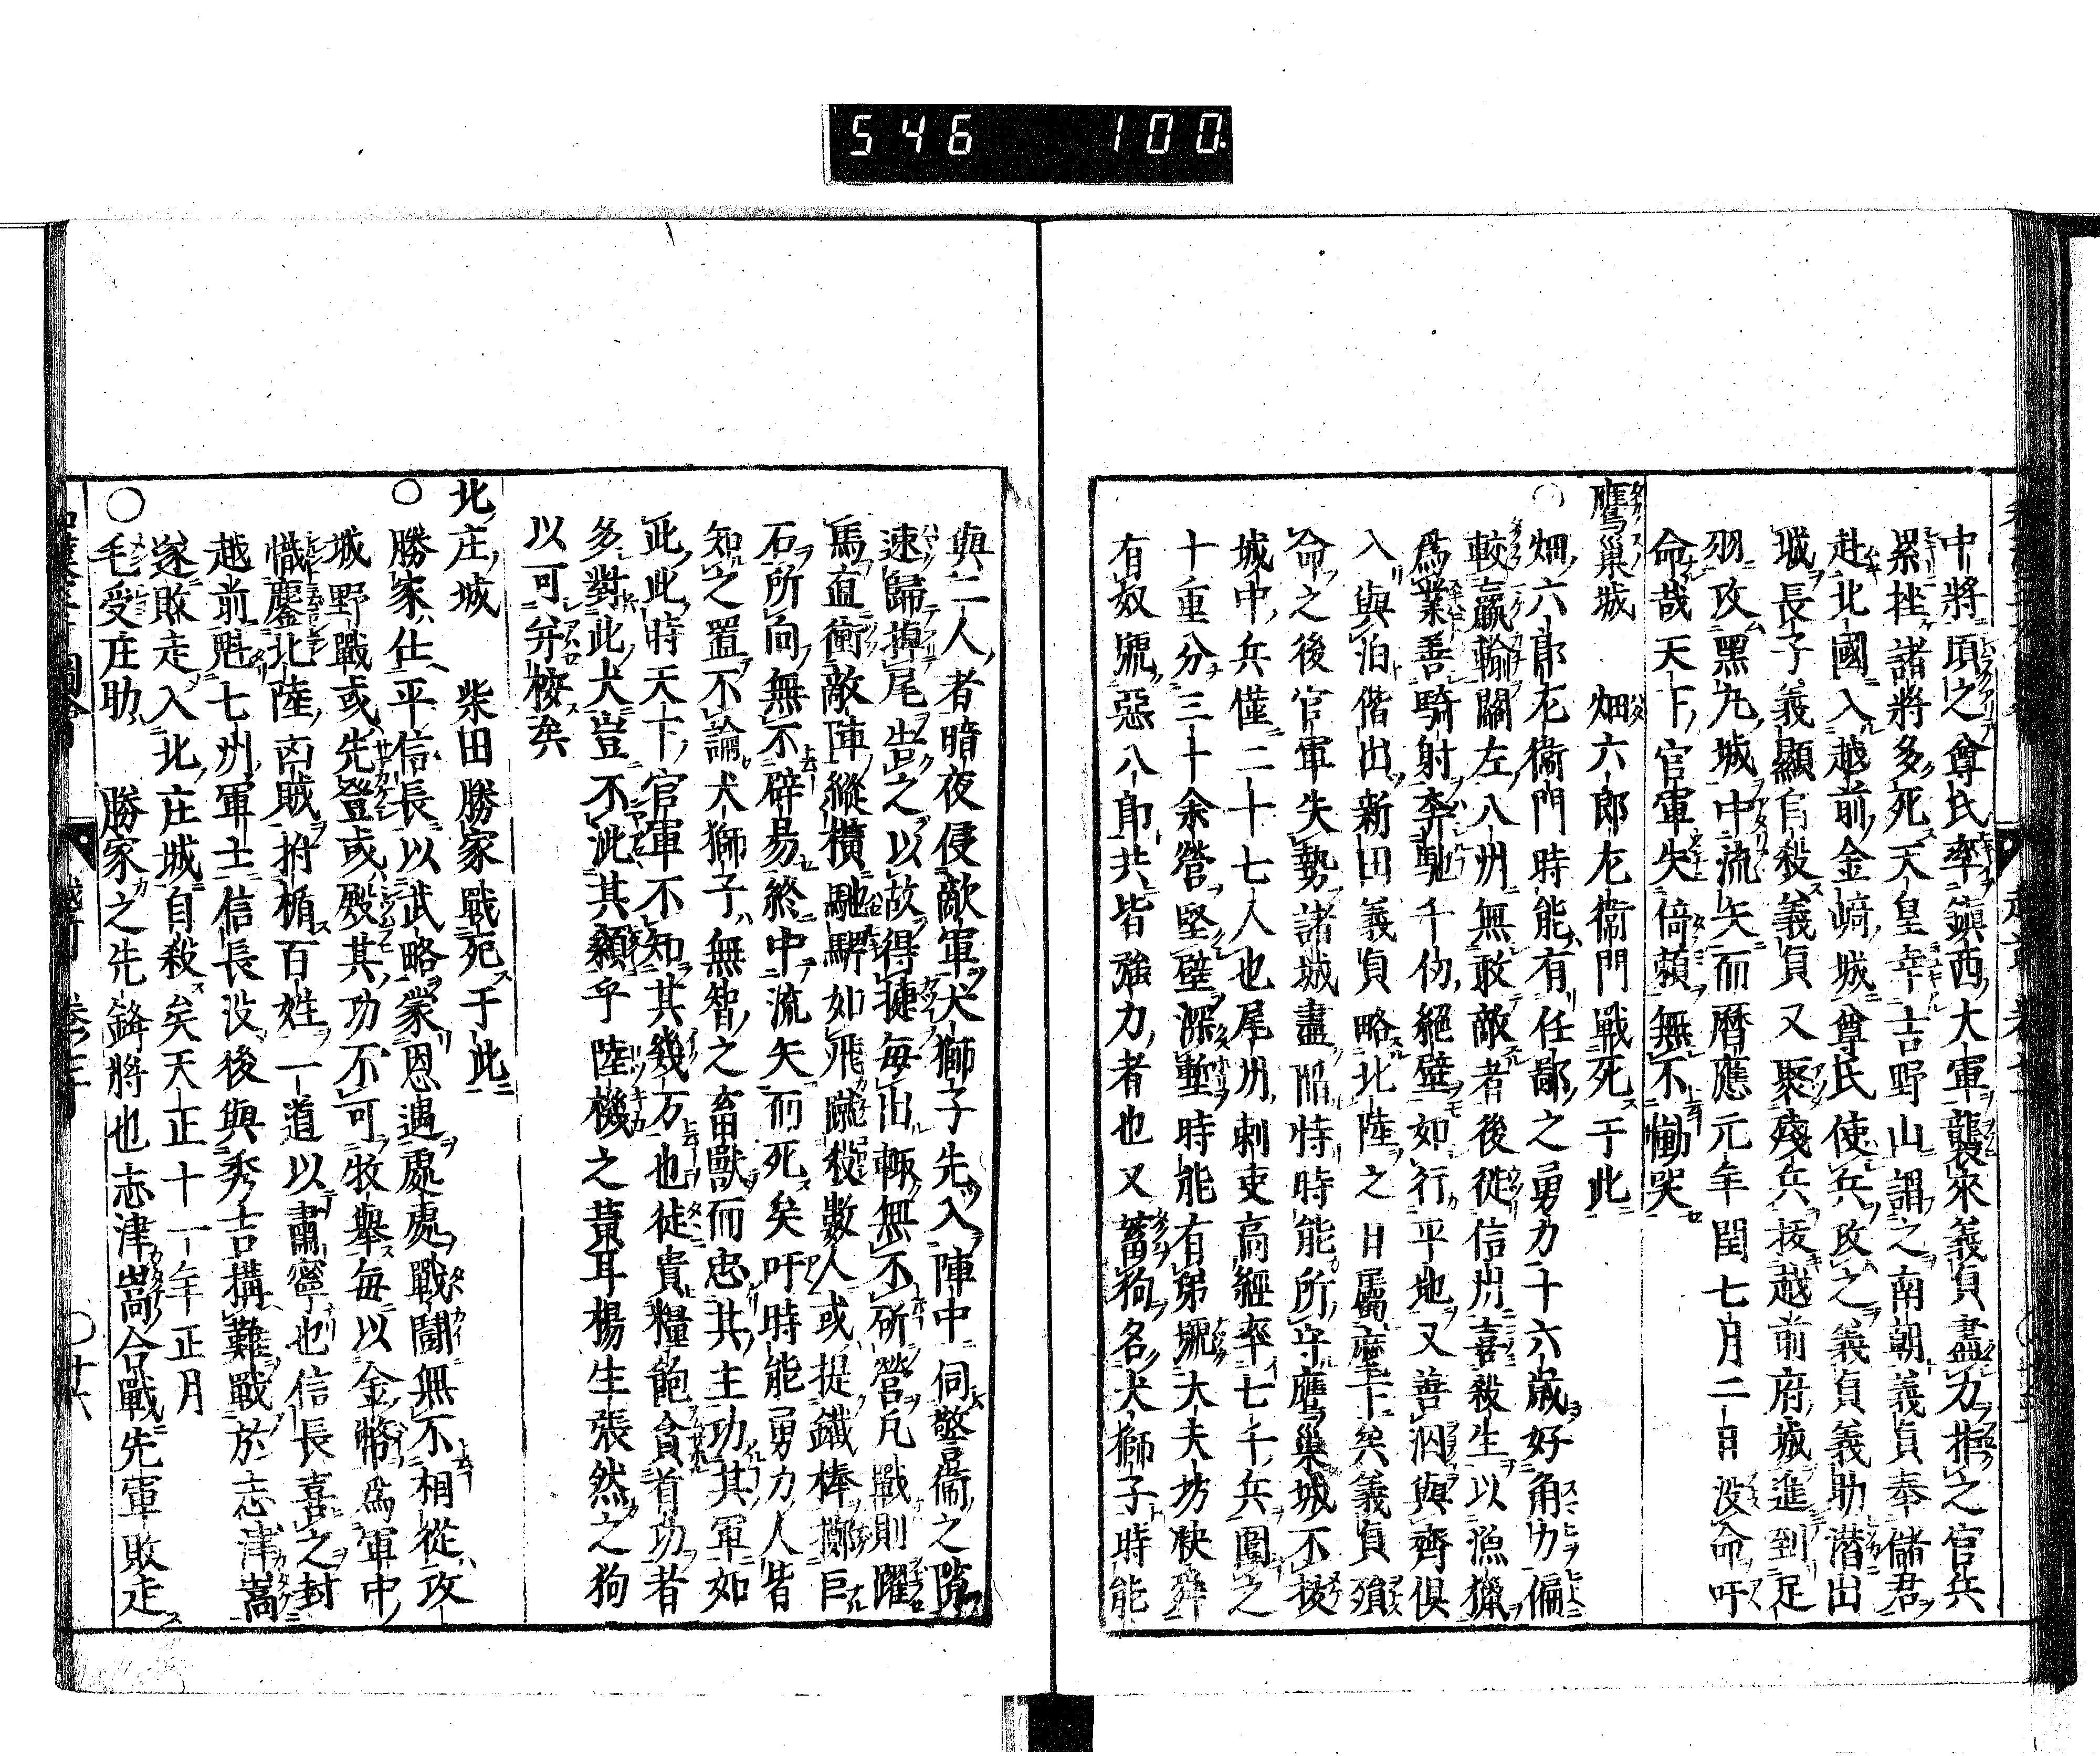 546 100.
中將頃之尊氏率鎮西大軍襲來義貞盡力拒之官兵
累挫諸將多死天皇幸吉野山謂之南朝義貞奉儲君
赴北國入越前金﨑城尊氏使兵攻之義貞義助潛出
城長子義顯自殺義貞又聚殘兵拔越前府城進到足
羽攻黑丸城中流矢而曆應元年閏七月二日没命吁
命哉天下官軍失倚賴無不慟哭
鷹巢城 畑六郎左衞門戰死于此
○畑六郎左衞門時能有任鄙之勇力十六歲好角力偏
較贏輸關左八州無敢敵者後從信州喜殺生以漁獵
爲業善騎射李馳千仞絕壁如行平地又善泅與齊俱
入與泊偕出新田義貞略北陸之日屬麾下矣義貞殞
命之後官軍失勢諸城盡陷恃時能所守鷹巢城不拔
城中兵僅二十七人也尾州刺吏高經率七千兵圍之
十重分三十余營堅壁深塹時能有弟號大夫坊快舜
有奴號惡八郎共皆強力者也又蓄狗名犬獅子時能
與二人者暗夜侵敵軍犬獅子先入陣中伺警衞之隙
速歸掉尾告之以故得捷每出輙無不斫營凡戰則躍
馬直衝敵陣縱橫馳騁如飛蹴殺數人或提鐵棒擲巨
石所向無不辟易終中流矢而死矣吁時能勇力人皆
知之置不論犬獅子無智之畜獸而忠其主功其軍如
此此時天下官軍不知其幾万也徒貴糧飽貪首功者
多對此犬豈不泚其顙乎陸機之黃耳楊生張然之狗
以可并按矣
北庄城 柴田勝家戰死于此
○勝家仕平信長以武略蒙恩遇處處戰鬪無不相從攻
城野戰或先登或殿其功不可牧舉每以金幣爲軍中
幟鏖北陸凶賊拊楯百姓一道以肅寧也信長喜之封
越前魁七州軍士信長没後與秀吉搆難戰於志津嵩
遂敗走入北庄城自殺矣天正十一年正月
○毛受庄助 勝家之先鋒將也志津嵩合戰先軍敗走